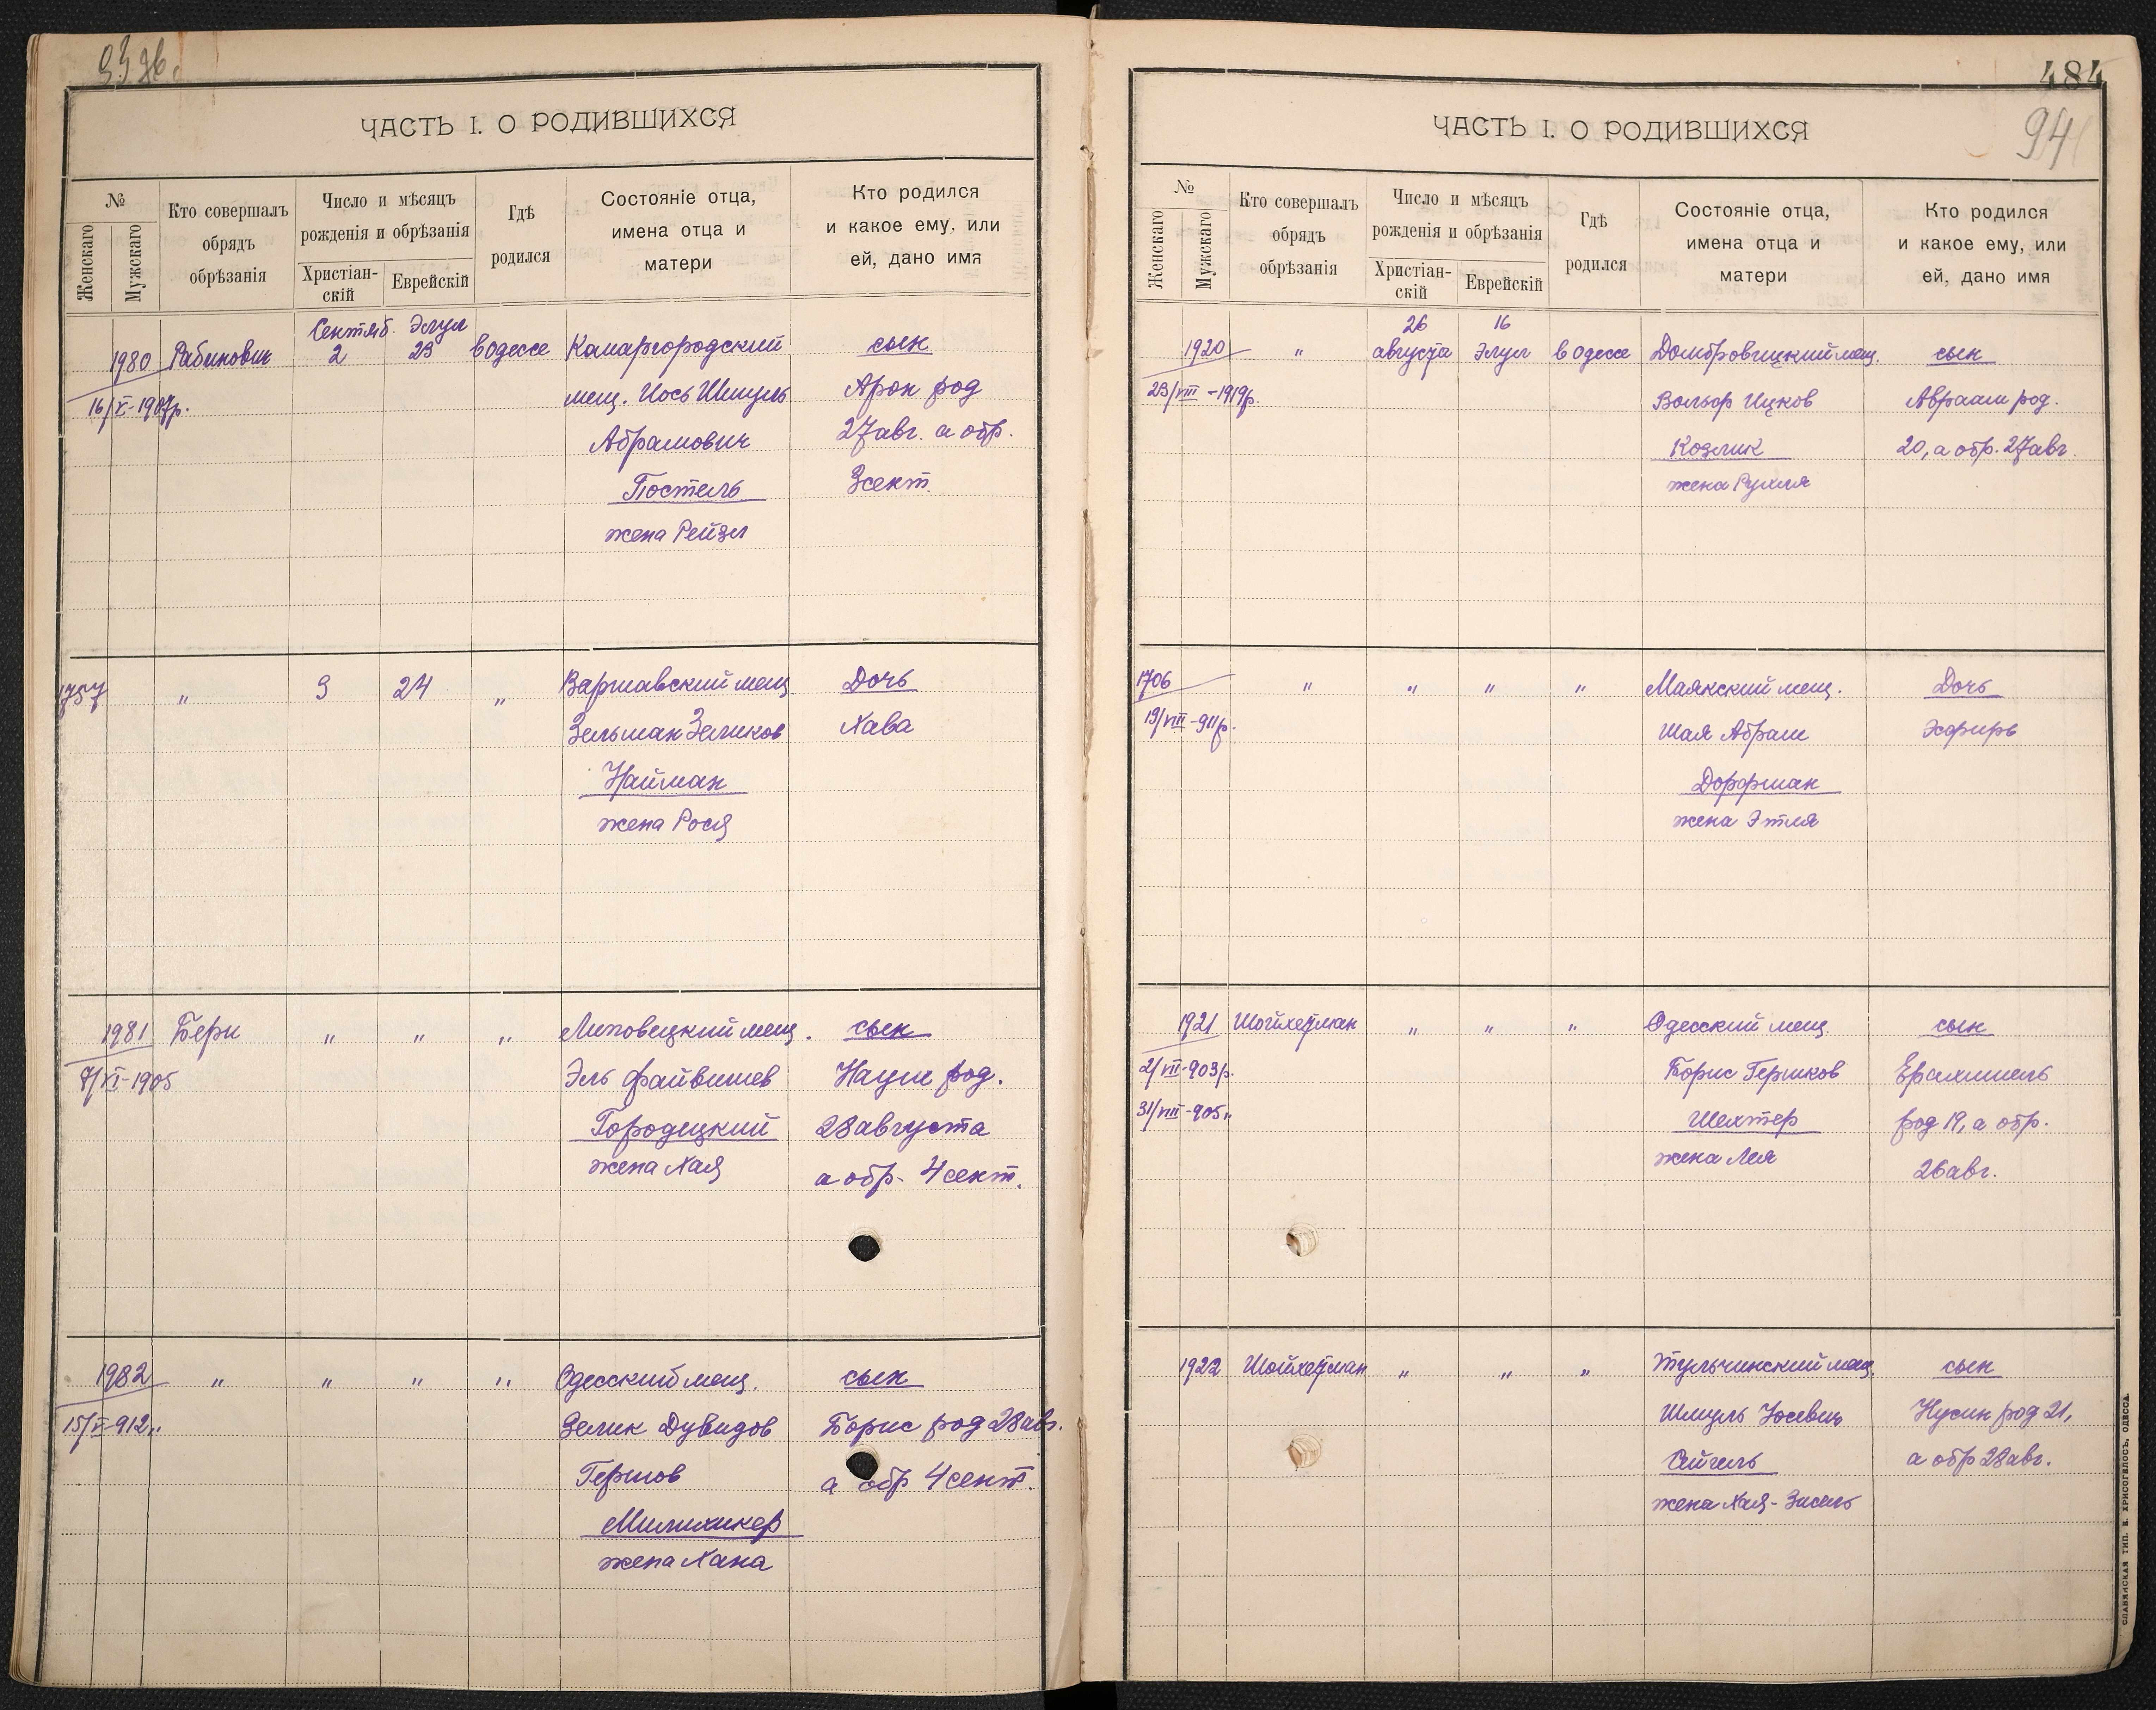 93 об.
ЧАСТЬ I. О РОДИВШИХСЯ
№
Женскаго
Мужскаго
Кто совершалъ
обрядъ
обрѣзанія
Число и мѣсяцъ
рожденія и обрѣзанія
Христіан-
скій
Еврейскій
Гдѣ
родился
Состояніе отца,
имена отца и
матери
Кто родился
и какое ему, или
ей, дано имя
Сентяб. Элул
1980 Рабинович 2 23 в Одессе Камаргородский сын
16/X-1907р. мещ. Иось Шмуль Арон род
Абрамович 27 авг. а обр.
Постель 3 сент.
жена Рейзл
1757 " 3 24 " Варшавский мещ Дочь
Зельман Зеликов Хава
Найман
жена Рося
1981 Бери " " " Липовецкий мещ. сын
8/XI-1905 Эль Файвишев Наум род.
Городецкий 28 августа
жена Хая а обр. 4 сент.
1982 " " " " Одесский мещ. сын
15/V-912.. Зелик Дувидов Борис род 28 авг.
Гершов а обр 4 сент.
Милихикер
жена Хана
484
94
ЧАСТЬ I. О РОДИВШИХСЯ
№
Женскаго
Мужскаго
Кто совершалъ
обрядъ
обрѣзанія
Число и мѣсяцъ
рожденія и обрѣзанія
Христіан-
скій
Еврейскій
Гдѣ
родился
Состояніе отца,
имена отца и
матери
Кто родился
и какое ему, или
ей, дано имя
26 16
1920 " августа Элул в Одессе Домбровицкий мещ. сын
23/VIII-1919р. Вольф Ицков Авраам род.
Козлик 20, а обр. 27 авг.
жена Рухля
1706 " " " " Маякский мещ. Дочь
19/VIII-911р. Шая Абрам Эсфирь
Дорфман
жена Этля
1921 Шойхетман " " " Одесский мещ сын
2/VII-903р. Борис Гершков Ерахмиель
31/VIII-905.. Шехтер род 19, а обр.
жена Лея 26 авг.
1922 Шойхетман " " " Тульчинский мещ. сын
Шмуль Иосевич Нусин род 21,
Сигель а обр 28 авг.
жена Хая-Зисель
СЛАВЯНСКАЯ ТИП. Е. ХРИСОГЕЛОСЪ, ОДЕССА.